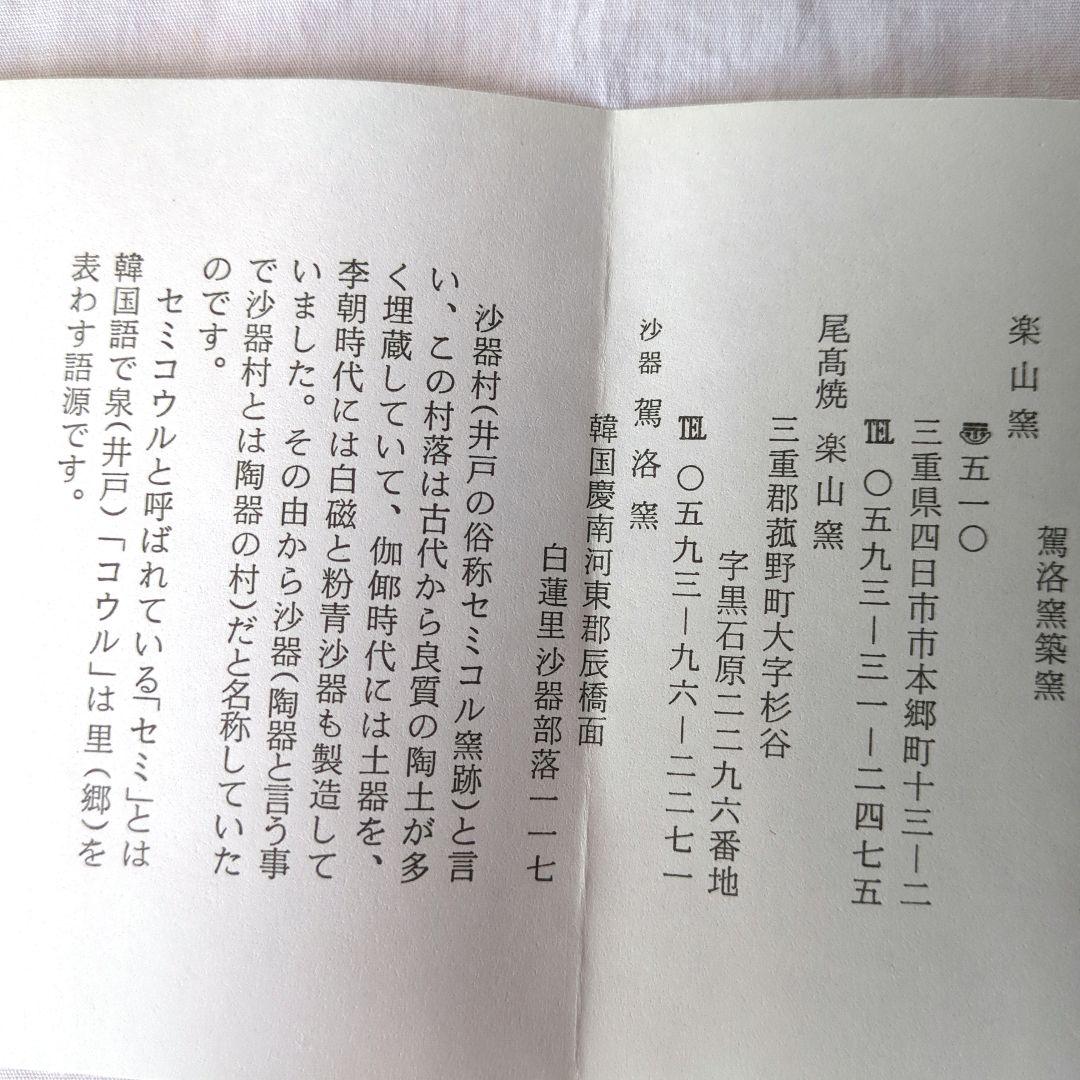 駕洛窯築窯
楽山窯
〠五一〇
三重県四日市市本郷町十三ー二
℡ 〇五九三ー三一ー二四七五
尾髙焼 楽山窯
三重郡菰野町大字杉谷
字黒石原二二九六番地
℡ 〇五九三ー九六ー二二七一
沙器 駕洛窯
韓国慶南河東郡辰橋面
白蓮里沙器部落一一七
沙器村(井戸の俗称セミコル窯跡)と言
い、この村落は古代から良質の陶土が多
く埋蔵していて、伽倻時代には土器を、
李朝時代には白磁と粉青沙器も製造して
いました。その由から沙器(陶器と言う事
で沙器村とは陶器の村)だと名称していた
のです。
セミコウルと呼ばれている「セミ」とは
韓国語で泉(井戸)「コウル」は里(郷)を
表わす語源です。